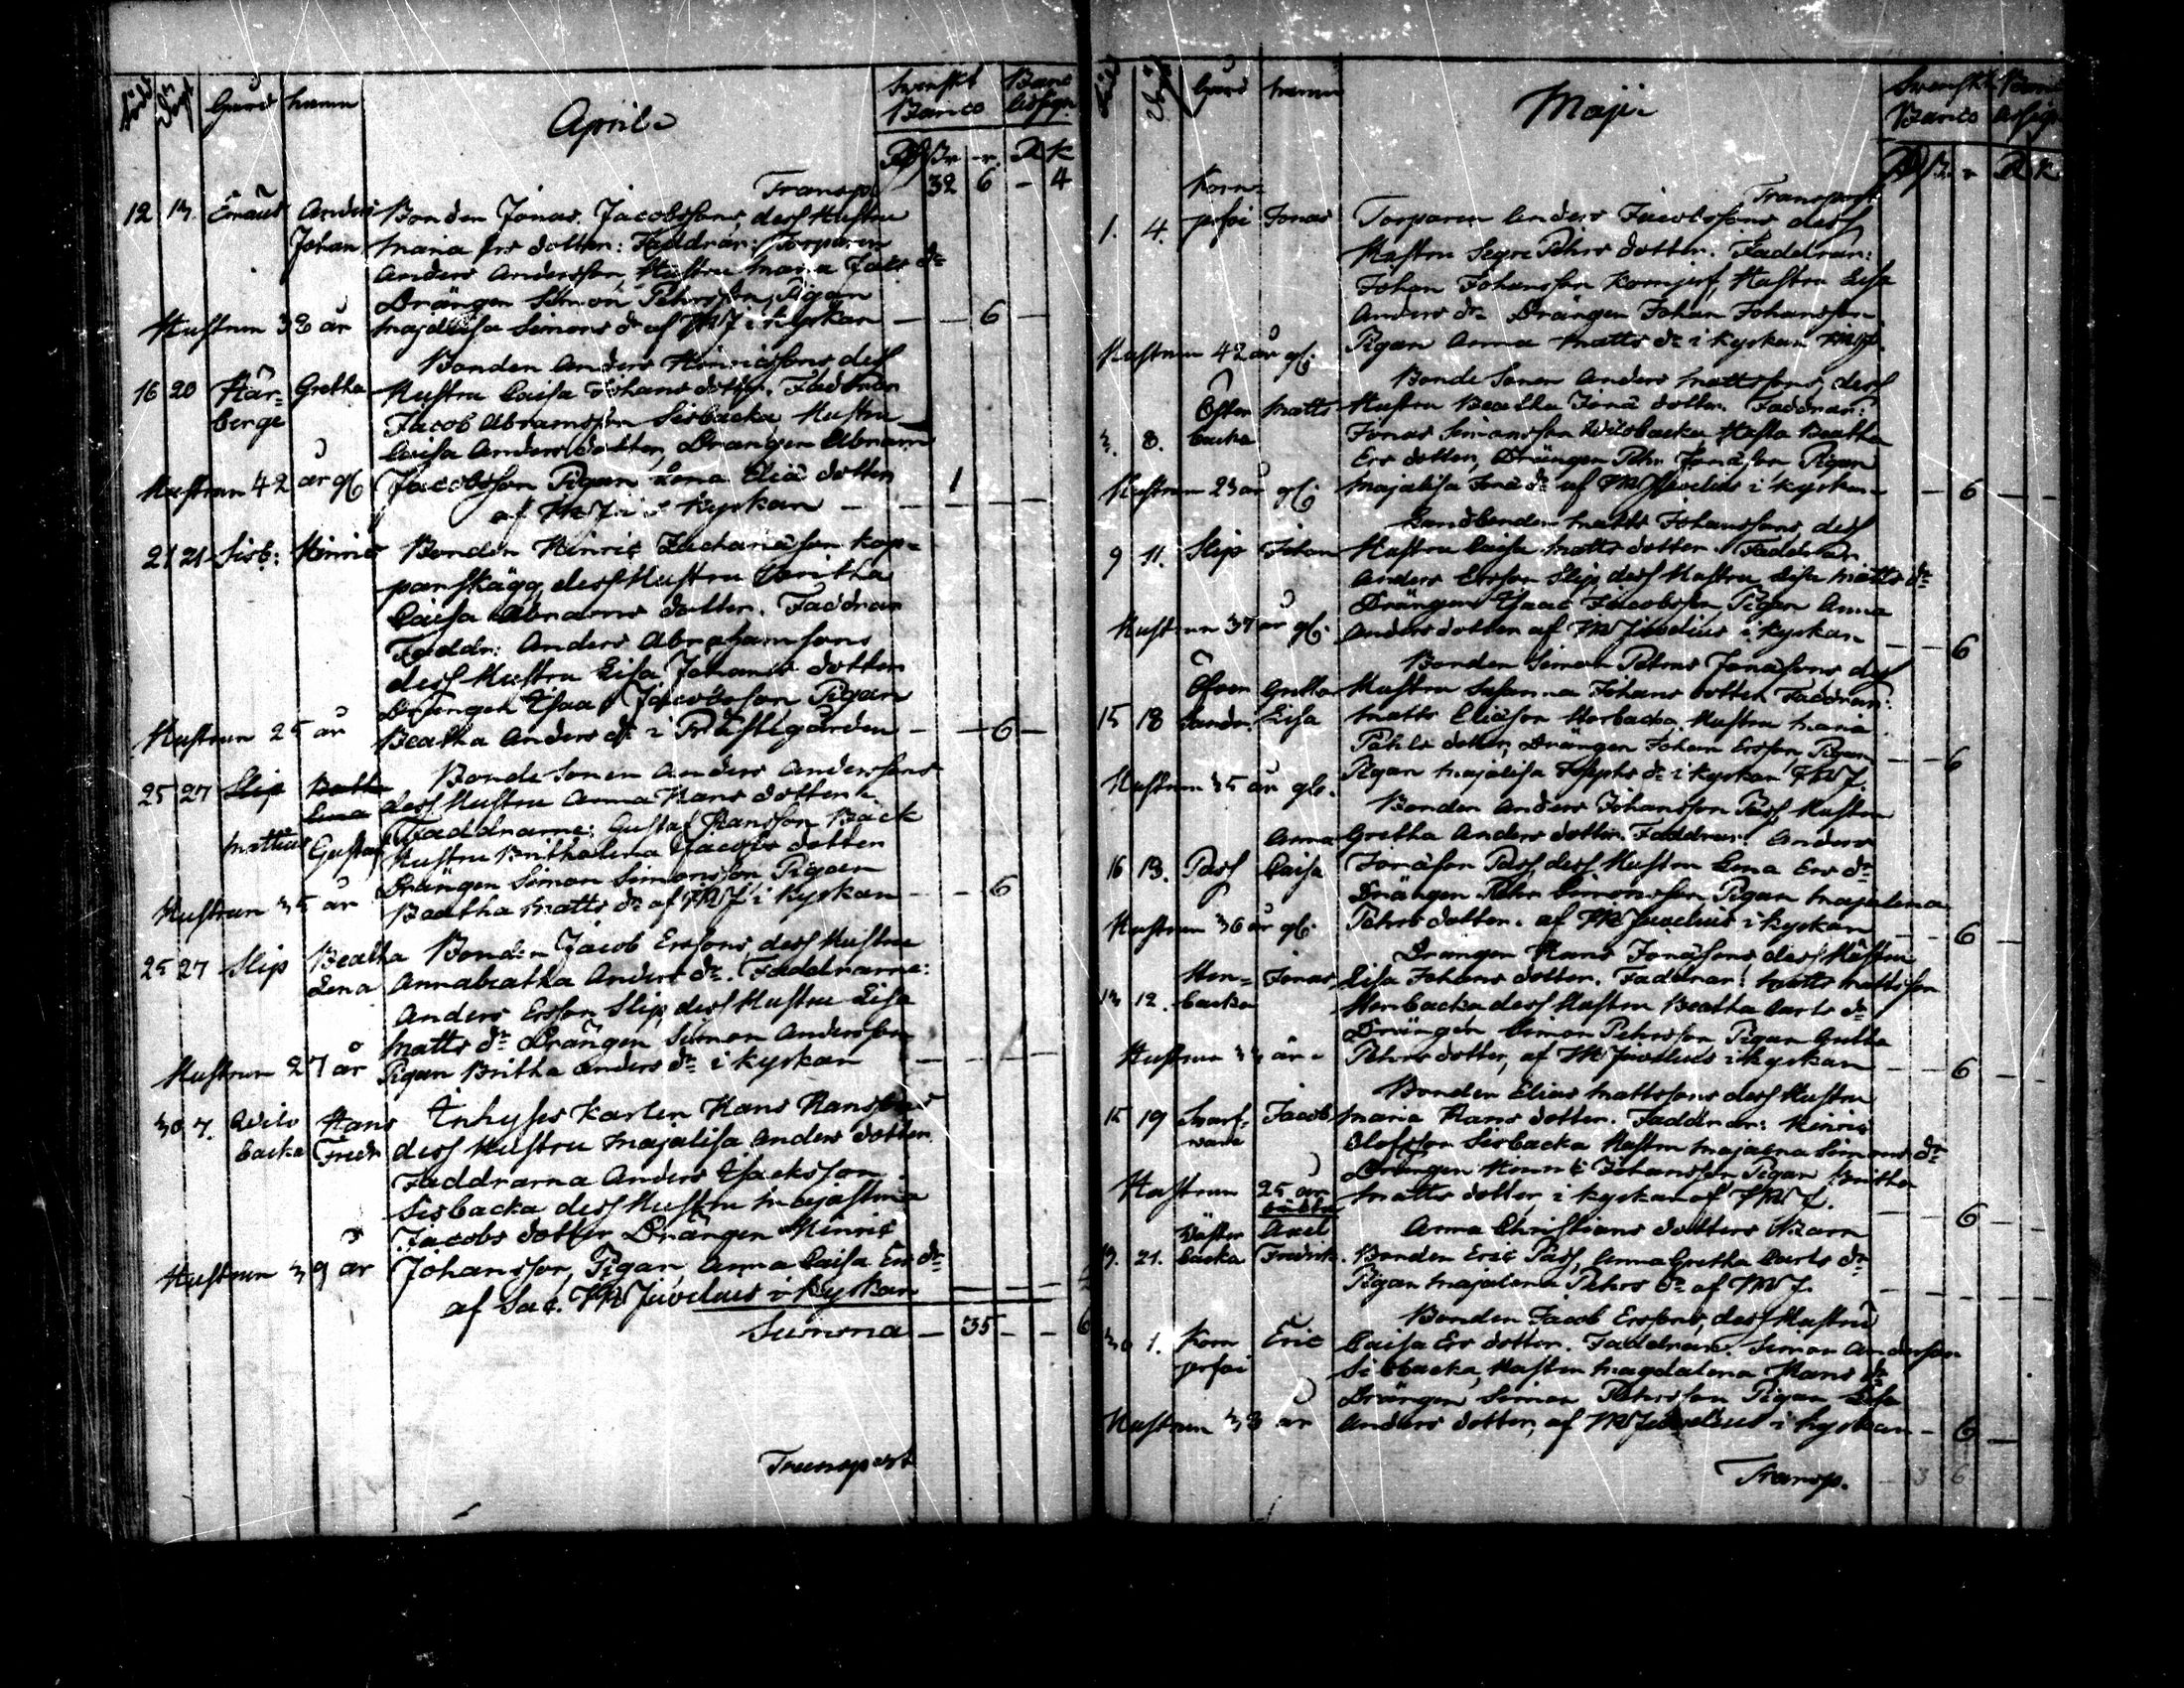 Född Döpt Gård Namn Aprill Swenskt Banco Banco Assign.
Rd Sk r. R K
Transp. 32 6 – 4
12 13. Emaus Anders Bonden Jonas Jacobssons dess Hustru
Johan Maria Ers dotter: Faddrar: Torparen
Anders Andersson, Hustru Maria Jakobs dr
Drängen Simon Pehrsson, Pigan
Hustrun 32 år Majalisa Simons dr af JW J i Kyrkan – – 6 –
Bonden Anders Hinricssons dess
16 20 Här= Gretha Hustru Caisa Johans dotter. Faddrar
berge Jacob Abramsson Sisbacka, Hustru
Caisa Anders dotter, Drängen Abram
Hustrun 42 år gl. Jacobsson Pigan Lena Eliæ dotter 1
af JW J i Kyrkan – – – –
21 21 Sisb: Hinric Bonden Hinric Zachariæson Kop=
parskägg dess Hustru Britha
Caisa Abrams dotter. Faddrar
Faddr: Anders Abrahamsons
dess Hustru Lisa Johans dotter
Drängen Isaac Jacobsson Pigan
Hustrun 25 år Beatha Anders dr i Prästegården – – 6 –
Bonde Sonen Anders Anderssons
25 27 Slip Beatha dess Hustru Anna Hans dotter
Lena Faddrarne: Gustaf Hansson Back
Mattias Gustaf Hustru Brithalena Jacobs dotter
Drängen Simon Simonsson Pigan
Hustrun 35 år Beatha Matts dr af JW J i Kyrkan – – 6
25 27 Slip Beatha Bonden Jacob Erssons dess Hustru
Lena Annabeatha Anders dr. Faddrarne:
Anders Ersson Slip, dess Hustru Lisa
Matts dr Drängen Simon Andersson
Hustrun 27 år Pigan Britha Anders dr i Kyrkan – – – –
30 7. Wils Hans Inhyses Karlen Hans Hanssons
backa Fredr dess Hustru Majalisa Anders dotter
Faddrarna Anders Isacksson
Sisbacka dess Hustru Majastina
Jacobs dotter Drängen Hinric
Hustrun 39 år Johansson, Pigan Anna Caisa Ers dr
af Sac. JW Juvelius i Kyrkan – – –
Summa – 35 – – 6
Transport
Född Döpt Gård Namn Maji Swenskt Banco Banco Assign
Rd Sk r R K
Transport
Korn=
1. 4. jerfvi Jonas Torparen Anders Jacobssons dess
Hustru Segre Pehrs dotter. Faddrar:
Johan Johansson Kornjerf, Hustru Lisa
Anders dr Drängen Johan Johansson
Hustrun 42 år gl. Pigan Anna Matts dr i Kyrkan
Bonde Sonen Anders Mattssons, dess
Öster Matts Hustru Beatha Jonæ dotter. Faddrar:
3. 8. backa Jonas Simonsson Wilsbacka Hustru Beatha
Ers dotter, Drängen Pehr Jonæson Pigan
Hustrun 23 år gl. Majalisa Jonæ dr af JW Juvelius i Kyrkan – 6 – –
Landbonden Matts Johanssons, dess
9 11. Slip Johan Hustru Caisa Matts dotter. Faddrar
Anders Ersson Slip, dess Hustru Lisa Matts dr
Drängen Isaac Jacobsson Pigan Anna
Hustrun 37 år gl. Anders dotter af JW Juvelius i Kyrkan – – 6
Bonden Simon Petrus Jonæsons dess
Gretha Hustru Susanna Johans dotter Faddrar:
15 18 Lisa Matts Eliæson Herbacka, Hustru Maria
Påhls dotter, Drängen Johan Ersson, Pigan
Hustrun 35 år gl. Pigan Majalisa Josephs dr i Kyrkan JW J. – – 6
Bonden Anders Johansson Pass Hustru
Anna Gretha Anders dotter. Faddrar: Anders
16 18. Pass Caisa Jonæson Pass, dess Hustru Lena Ers dr
Drängen Pehr Simonsson Pigan Majalena
Hustrun 36 år gl. Pehrs dotter. af JW Juvelius i Kyrkan – – 6 –
Drängen Hans Jonæsons dess Hustru
Hen= Jonas Lisa Johans dotter. Faddrar: Matts Mattsson
13 12. backa Herrbacka dess Hustru Beatha Carls dr
Drängen Simon Pehrsson Pigan Gretha
Hustrun 33 år Pehrs dotter, af JW Juvelius i Kyrkan – – 6 –
Bonden Elias Mattssons dess Hustru
15 19 Swart= Jacob Maria Hans dotter. Faddrar: Hinric
Olofsson Sisbacka Hustru Majalena Simons dr
Drängen Hinric Johansson Pigan Britha
Hustrun 25 år Matts dotter, i Kyrkan af JW J. – – 6 –
Wäster Axel Anna Christians dotters Barn
19. 21. backa Fredrik. Bonden Eric Pass, Anna Gretha Carls dr
Pigan Majalena Pehrs dr af JW J. – – – – –
Bonden Jacob Erssons, dess Hustru
30 1. Korn Eric Caisa Ers dotter. Faddrar. Simon Andersson
jerfvi Sisbacka, Hustru Magdalena Hans dr
Drängen Simon Pehrsson Pigan Lisa
Hustrun 38 år Anders dotter, af JW Juvelius i Kyrkan – 6 –
Transp. – 3 6